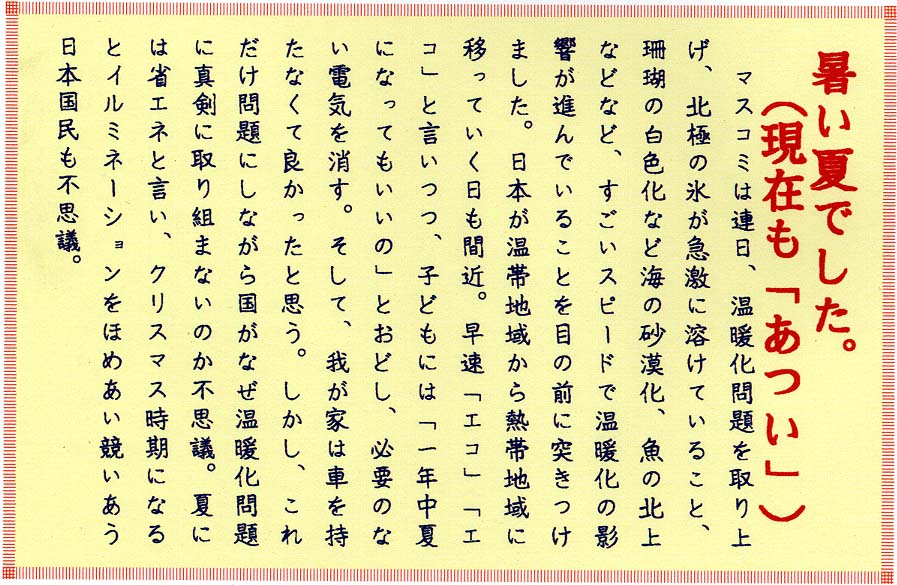 暑い夏でした。
(現在も「あつい」)
マスコミは連日、温暖化問題を取り上
げ、北極の氷が急激に溶けていること、
珊瑚の白色化など海の砂漠化、魚の北上
などなど、すごいスピードで温暖化の影
響が進んでいることを目の前に突きつけ
ました。日本が温帯地域から熱帯地域に
移っていく日も間近。早速「エコ」「エ
コ」と言いつつ、子どもには「一年中夏
になってもいいの」とおどし、必要のな
い電気を消す。そして、我が家は車を持
たなくて良かったと思う。しかし、これ
だけ問題にしながら国がなぜ温暖化問題
に真剣に取り組まないのか不思議。夏に
は省エネと言い、クリスマス時期になる
とイルミネーションをほめあい競いあう
日本国民も不思議。